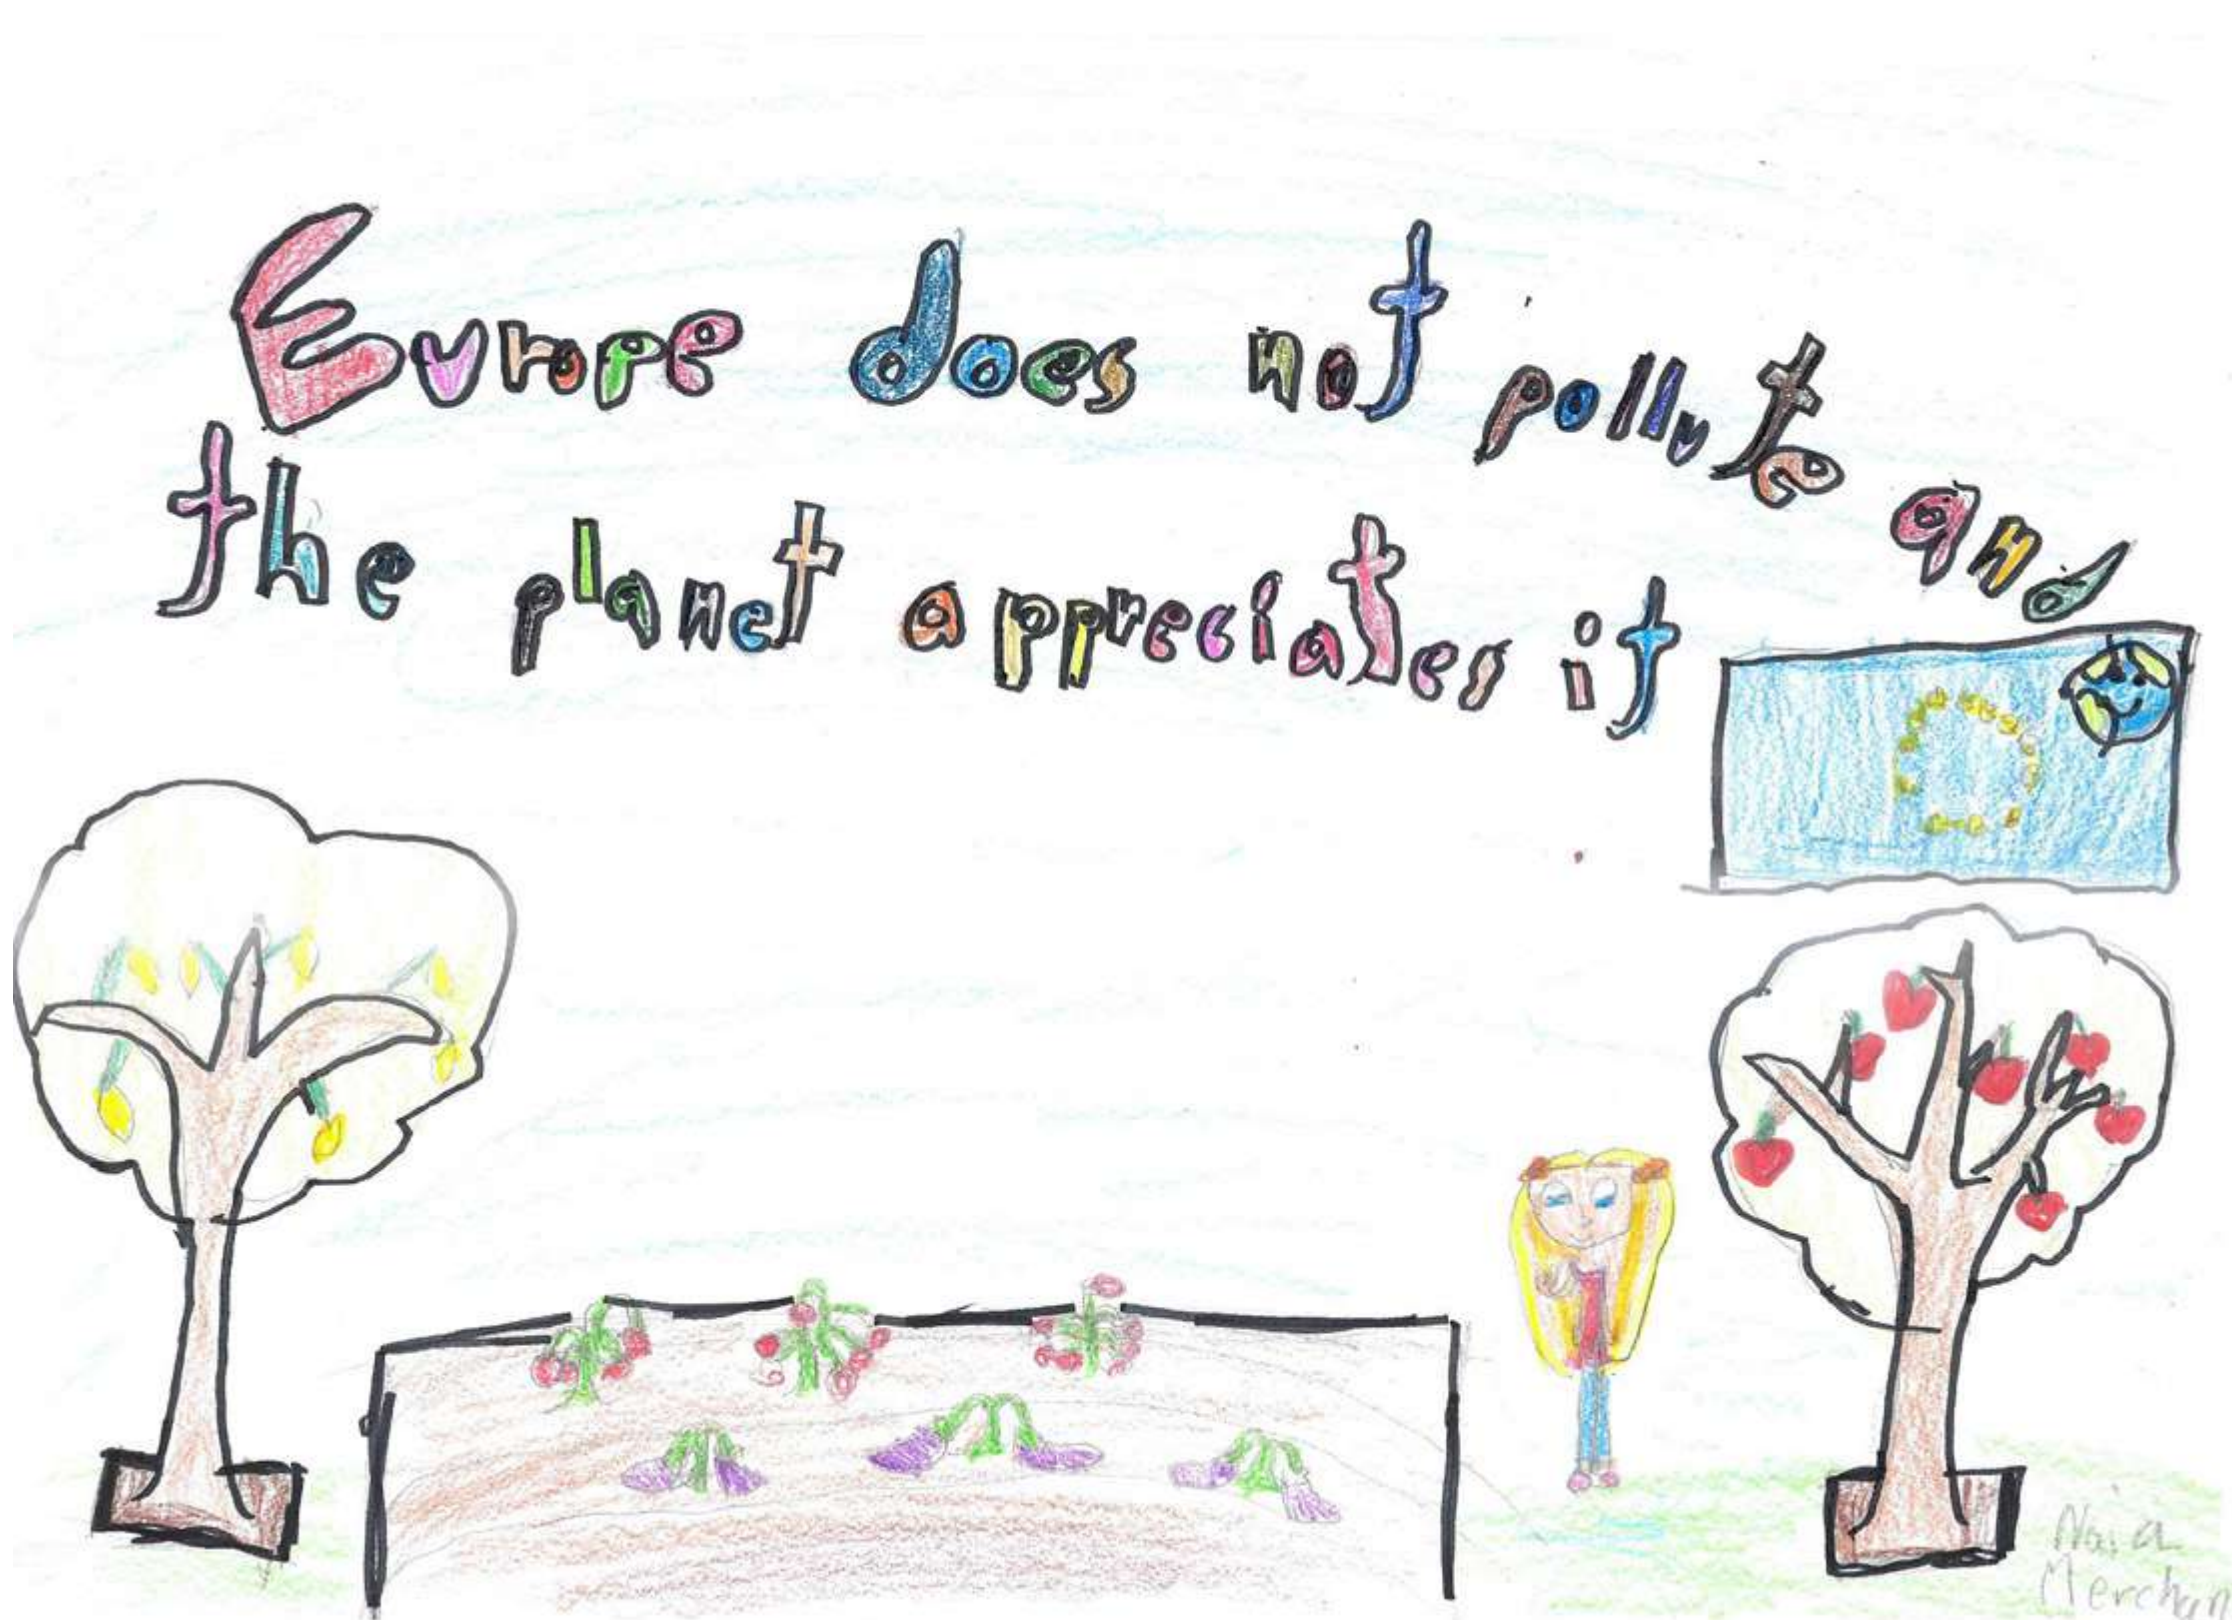 Europe does not pollute and
the planet appreciates it
Naia
Merchan